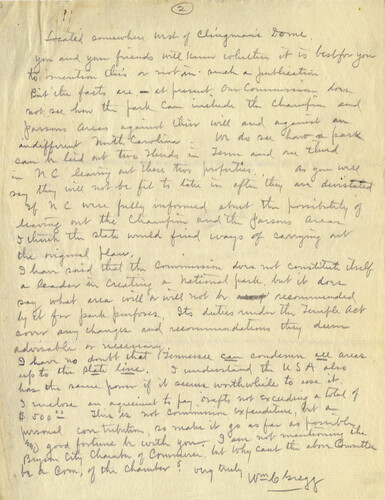 (2)
Located somewhere West of Clingman's Dome.
You and your friends will know whether it is best for you
to mention this or not in such a publication
But the facts are — at present our Commission does
not see how the park can include the Champion and
Parsons Areas against their will and against an
indifferent North Carolina — We do see how a park
can be laid out two thirds in Tenn and one third
in N C leaving out these two properties. As you will
say they will not be fit to take in after they are devistated
If N C were fully informed about the possibility of
leaving out the Champion and the Parsons Areas
I think the State would find ways of carrying out
the original plan.
I have said that the Commission does not constitute itself
a leader in creating a National park but it does
say what area will or will not be recommended
by it for park purposes. Its duties under the Temple Act
cover any changes and recommendations they deem
advisable or necessary.
I have no doubt that Tennessee can condemn all areas
up to the state line. I understand the U S A also
has the same power if it seems worthwhile to use it.
I enclose an agreement to pay drafts not exceeding a total of
$500.00 This is not Commission expenditure, but a
personal contribution, so make it go as far as possible
and good fortune be with you. I am not mentioning the
Bryson City Chamber of Commerce, but why cant the above Committee
be a Com, of the Chamber? Very truly Wm C Gregg